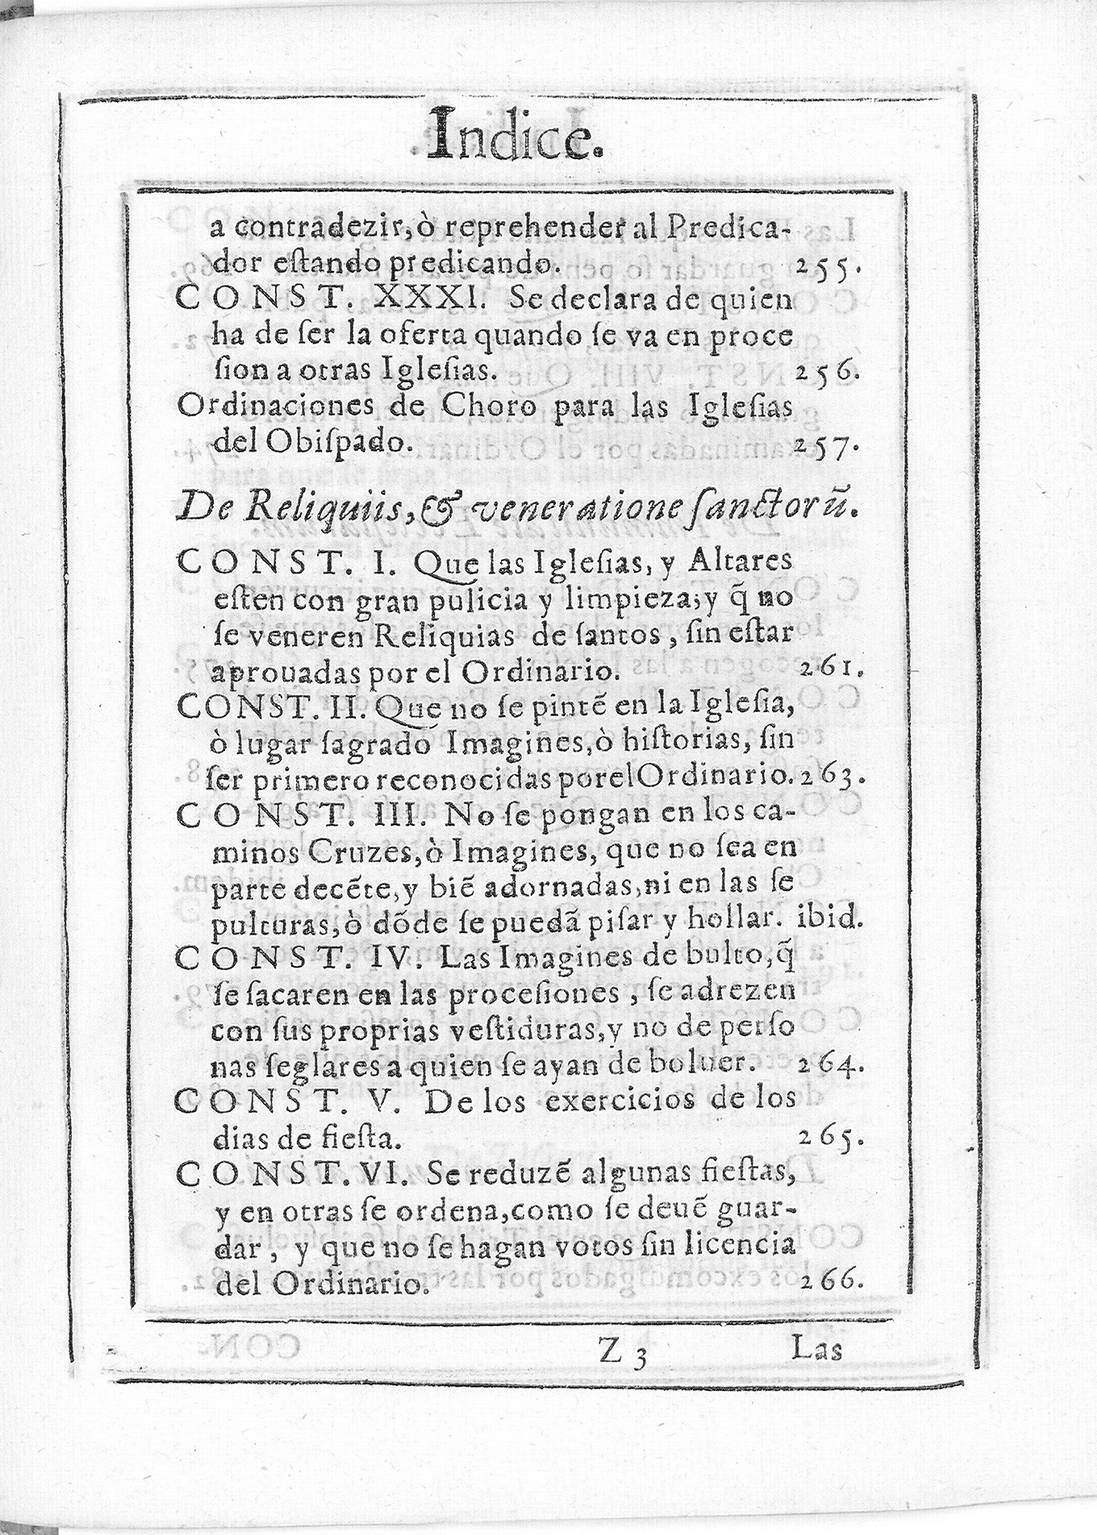 Indice.
a contradezir, ò reprehender al Predica-
dor eſtando predicando. 255.
CONST. XXXI. Se declara de quien
ha de ſer la oferta quando ſe va en proce
ſion a otras Igleſias. 256.
Ordinaciones de Choro para las Igleſias
del Obiſpado. 257.
De Reliquiis, & veneratione ſanctorū.
CONST. I. Que las Igleſias, y Altares
eſten con gran pulicia y limpieza; y q̃ no
ſe veneren Reliquias de ſantos, ſin eſtar
aprouadas por el Ordinario. 261.
CONST. II. Que no ſe pintẽ en la Igleſia,
ò lugar ſagrado Imagines, ò hiſtorias, ſin
ſer primero reconocidas por el Ordinario. 263.
CONST. III. No ſe pongan en los ca-
minos Cruzes, ò Imagines, que no ſea en
parte decẽte, y biẽ adornadas, ni en las ſe
pulturas, ò dõde ſe puedã piſar y hollar. ibid.
CONST. IV. Las Imagines de bulto, q̃
ſe ſacaren en las proceſiones, ſe adrezen
con ſus proprias veſtiduras, y no de perſo
nas ſeglares a quien ſe ayan de boluer. 264.
CONST. V. De los exercicios de los
dias de fieſta. 265.
CONST. VI. Se reduzẽ algunas fieſtas,
y en otras ſe ordena, como ſe deuẽ guar-
dar, y que no ſe hagan votos ſin licencia
del Ordinario. 266.
Z 3 Las